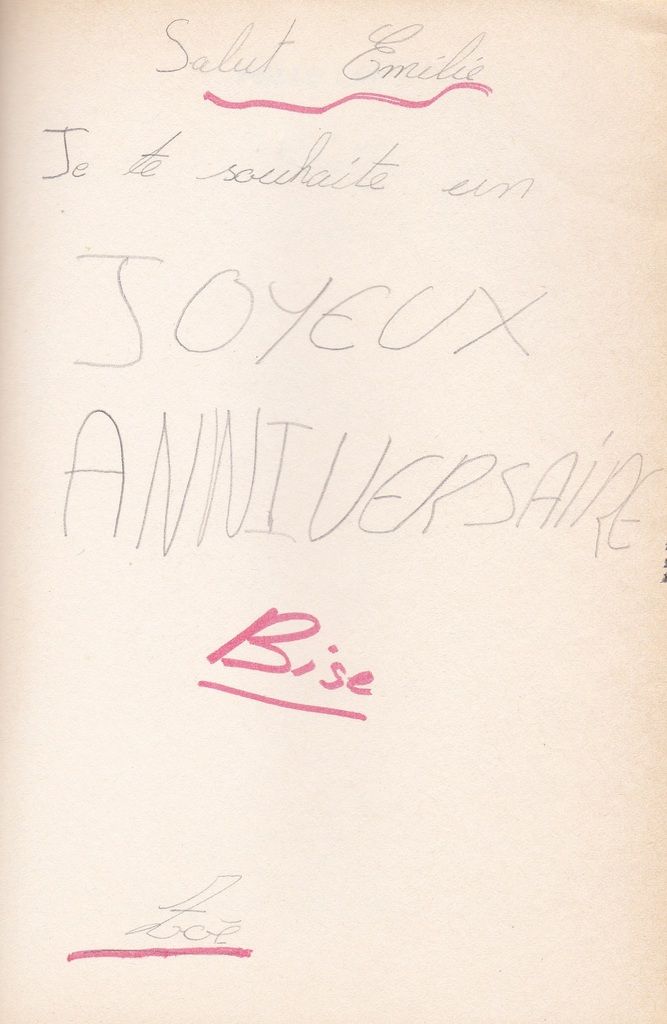 Salut Emilie
Je te souhaite un
JOYEUX
ANNIVERSAIRE
Bise
Zoé